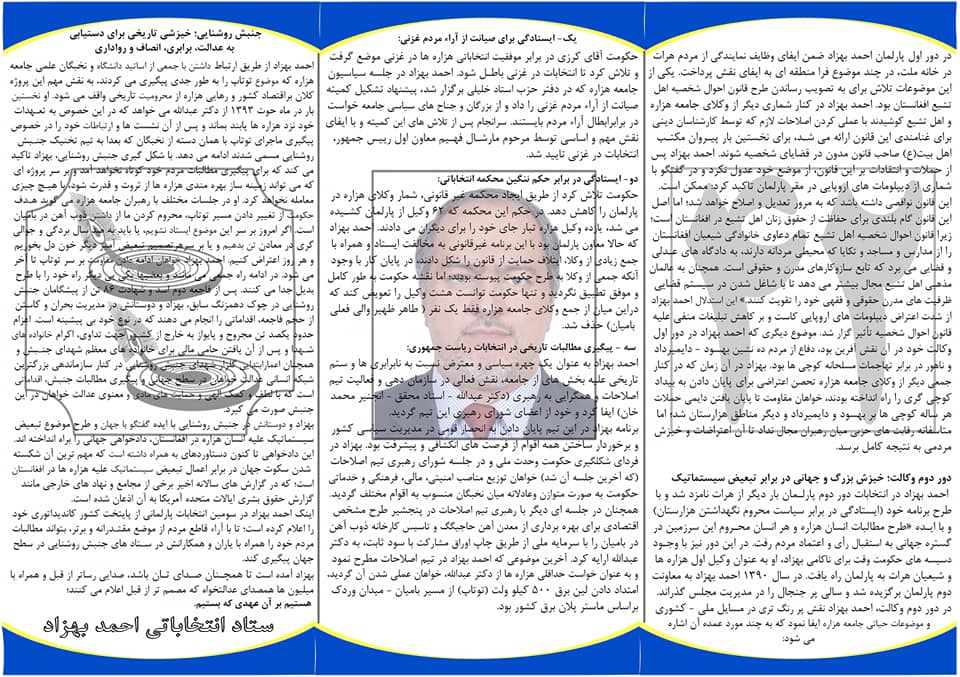 در دور اول پارلمان احمد بهزاد ضمن ایفای وظایف نمایندگی از مردم هرات
در خانه ملت، در چند موضوع فرا منطقه ای به ایفای نقش پرداخت. یکی از
این موضوعات تلاش برای به تصویب رساندن طرح قانون احوال شخصیه اهل
تشیع افغانستان بود. احمد بهزاد در کنار شماری دیگر از وکلای جامعه هزاره
و اهل تشیع کوشیدند با عملی کردن اصلاحات لازم که توسط کارشناسان دینی
برای غنامندی این قانون ارائه می شد، برای نخستین بار پیروان مکتب
اهل بیت(ع) صاحب قانون مدون در قضایای شخصیه شوند. احمد بهزاد پس
از حملات و انتقادات بر این قانون، از موضع خود عدول نکرد و در گفتگو با
شماری از دیپلومات های اروپایی در مقر پارلمان تاکید کرد: ممکن است
این قانون نواقصی داشته باشد که به مرور تعدیل و اصلاح خواهد شد؛ اما اصل
این قانون گام بلندی برای حفاظت از حقوق زنان اهل تشیع در افغانستان است؛
زیرا قانون احوال شخصیه اهل تشیع تمام دعاوی خانوادگی شیعیان افغانستان
را از مدارس و مساجد و تکایا که محیطی مردانه دارند، به دادگاه های عدلی
و قضایی می برد که تابع سازوکارهای مدرن و حقوقی است. همچنان به عالمان
مذهبی اهل تشیع مجال بیشتر می دهد تا با شاغل شدن در سیستم قضایی
ظرفیت های مدرن حقوقی و فقهی خود را تقویت کنند." این استدلال احمد بهزاد
از شدت اعتراض دیپلومات های اروپایی کاست و بر کاهش تبلیغات منفی علیه
قانون احوال شخصیه تأثیر گزار شد. موضوع دیگری که احمد بهزاد در دور اول
وکالت خود در آن نقش آفرین بود، دفاع از مردم ده نشین بهسود - دایمیرداد
و ناهور در برابر تهاجمات مسلحانه کوچی ها بود. بهزاد در آن زمان که در کنار
جمعی دیگر از وکلای جامعه هزاره تحصن اعتراضی برای پایان دادن به بیداد
کوچی گری را راه انداخته بودند، خواهان مقاومت تا پایان یافتن دایمی حملات
هر ساله کوچی ها بر بهسود و دایمیرداد و دیگر مناطق هزارستان شد؛ اما
متاسفانه رقابت های حزبی میان رهبران مجال نداد تا آن اعتراضات و خیزش
مردمی به نتیجه کامل برسد.
دور دوم وکالت؛ خیزش بزرگ و جهانی در برابر تبعیض سیستماتیک
احمد بهزاد در انتخابات دور دوم پارلمان بار دیگر از هرات نامزد شد و با
طرح برنامه خود (ایستادگی در برابر سیاست محروم نگهداشتن هزارستان)
و با ایده «طرح مطالبات انسان هزاره و هر انسان محروم این سرزمین در
گستره جهانی به استقبال رأی و اعتماد مردم رفت. در این دور نیز با وجود
دسیسه های حکومت وقت برای ناکامی بهزاد، او به عنوان وکیل اول هزاره ها
و شیعیان هرات به پارلمان راه یافت. در سال ۱۳۹۰ احمد بهزاد به معاونت
دوم پارلمان برگزیده شد و سالی پر جنجال را در مدیریت مجلس گذراند.
در دور دوم وکالت، احمد بهزاد نقش پر رنگ تری در مسایل ملی - کشوری
و موضوعات حیاتی جامعه هزاره ایفا نمود که به چند مورد عمده آن اشاره
می شود:
۴۲
یک- ایستادگی برای صیانت از آراء مردم غزنی:
حکومت آقای کرزی در برابر موفقیت انتخاباتی هزاره ها در غزنی موضع گرفت
و تلاش کرد تا انتخابات در غزنی باطل شود. احمد بهزاد در جلسه سیاسیون
جامعه هزاره که در دفتر حزب استاد خلیلی برگزار شد، پیشنهاد تشکیل کمیته
صیانت از آراء مردم غزنی را داد و از بزرگان و جناح های سیاسی جامعه خواست
در برابرابطال آراء مردم بایستند. سرانجام پس از تلاش های این کمیته و با ایفای
نقش مهم و اساسی توسط مرحوم مارشال فهیم معاون اول رییس جمهور،
انتخابات در غزنی تایید شد.
دو - ایستادگی در برابر حکم ننگین محکمه انتخاباتی:
حکومت تلاش کرد از طریق ایجاد محکمه غیر قانونی، شمار وکلای هزاره در
پارلمان را کاهش دهد. در حکم این محکمه که ۶۲ وکیل از پارلمان کشیده
می شد، یازده وکیل هزاره تبار جای خود را برای دیگری می دادند. احمد بهزاد
که حالا معاون پارلمان بود با این برنامه غیرقانونی به مخالفت ایستاد و همراه با
جمع زیادی از وکلا، ائتلاف حمایت از قانون را شکل دادند. در پایان کار با وجود
آنکه جمعی از وکلا به طرح حکومت پیوسته بودند؛ اما نقشه حکومت به طور کامل
و موفق تطبیق نگردید و تنها حکومت توانست هشت وکیل را تعویض کند که
دراین میان از جمع وکلای جامعه هزاره فقط یک نفر ( طاهر ظهیر والی فعلی
بامیان) حذف شد.
سه - پیگیری مطالبات تاریخی در انتخابات ریاست جمهوری:
احمد بهزاد به عنوان یک چهره سیاسی و معترض نسبت به نابرابری ها و ستم
تاریخی علیه بخش های از جامعه، نقش فعال در سازمان دهی و فعالیت تیم
اصلاحات و همگرایی به رهبری (دکتر عبدالله - استاد محقق - انجنیر محمد
خان) ایفا کرد و خود از اعضای شورای رهبری این تیم گردید.
برنامه بهزاد در این تیم پایان دادن به انحصار قومی در مدیریت سیاسی کشور
و برخوردار ساختن همه اقوام از فرصت های انکشافی و پیشرفت بود. بهزاد در
فردای شکلگیری حکومت وحدت ملی و در جلسه شورای رهبری تیم اصلاحات
(که آخرین جلسه آن شد) خواهان توزیع مناصب امنیتی، مالی، فرهنگی و خدماتی
حکومت به صورت متوازن وعادلانه میان نخبگان منسوب به اقوام مختلف گردید.
همچنان در جلسه ای دیگر با رهبری تیم اصلاحات در پنجشیر طرح مشخص
اقتصادی برای بهره برداری از معدن آهن حاجیگک و تاسیس کارخانه ذوب آهن
در بامیان را با سرمایه ملی از طریق چاپ اوراق مشارکت با سود ثابت، به دکتر
عبدالله ارایه کرد. آخرین موضوعی که احمد بهزاد در تیم اصلاحات مطرح نمود
و به عنوان خواست حداقلی هزاره ها از دکتر عبدالله، خواهان عملی شدن آن گردید،
امتداد دادن لین برق ۵۰۰ کیلو ولت (توتاپ) از مسیر بامیان - میدان وردک
براساس ماستر پلان برق کشور بود.
جنبش روشنایی؛ خیزشی تاریخی برای دستیابی
به عدالت، برابری، انصاف و رواداری
احمد بهزاد از طریق ارتباط داشتن با جمعی از اساتید دانشگاه و نخبگان علمی جامعه
هزاره که موضوع توتاپ را به طور جدی پیگیری می کردند، به نقش مهم این پروژه
کلان براقتصاد کشور و رهایی هزاره از محرومیت تاریخی واقف می شود. او نخستین
بار در ماه حوت ۱۳۹۳ از دکتر عبدالله می خواهد که در این خصوص به تعهدات
خود نزد هزاره ها پابند بماند و پس از آن نشست ها و ارتباطات خود را در خصوص
پیگیری ماجرای توتاپ با همان دسته از نخبگان که بعدا به تیم تخنیک جنبش
روشنایی مسمی شدند ادامه می دهد. با شکل گیری جنبش روشنایی، بهزاد تاکید
می کند که برای پیگیری مطالبات مردم خود کوتاه نخواهد آمد و بر سر پروژه ای
که می تواند زمینه ساز بهره مندی هزاره ها از ثروت و قدرت شود، با هیچ چیزی
معامله نخواهد کرد. او در جلسات مختلف با رهبران جامعه می گوید هدف
حکومت از تغییر دادن مسیر توتاپ، محروم کردن ما از داشتن ذوب آهن در بامیان
است. اگر امروز بر سر این موضوع ایستاد نشویم، یا باید به سال بردگی و جوالی
گری در معادن تن بدهیم و یا بر سر هر تقسیم تبعیض آمیز دیگر خون دل بخوریم
و هر روز اعتراض کنیم. احمد بهزاد خواهان ادامه دادن مقاومت بر سر توتاپ تا آخر
می شود. در ادامه راه جمعی می مانند و بعضیها یکی پی دیگر راه خود را با طرح
بدیل جدا می کنند. پس از فاجعه دوم اسد و شهادت ۸۶ تن از پیشگامان جنبش
روشنایی در چوک دهمزنگ سابق، بهزاد و دوستانش در مدیریت بحران و کاستن
از حجم فاجعه، اقداماتی را انجام می دهند که در نوع خود بی پیشینه است. اعزام
حدود یکصد تن مجروح و پایواز به خارج از کشور جهت تداوی، اکرام خانواده های
شهدا و پس از آن یافتن حامی مالی برای خانواده های معظم شهدای جنبش و
همچنان اعمارآبدات گلزار شهدای جنبش روشنایی در کنار سازماندهی بزرگترین
شبکه انسانی عدالت خواهان در سطح جهانی و پیگیری مطالبات جنبش، اقداماتی
است که با لطف و کمک الهی و حمایت های مادی و معنوی عدالت خواهان در این
جنبش صورت می گیرد.
بهزاد و دوستانش در جنبش روشنایی با ایده گفتگو با جهان و طرح موضوع تبعیض
سیستماتیک علیه انسان هزاره در افغانستان، دادخواهی جهانی را براه انداخته اند.
این دادخواهی تا کنون دستاوردهای به همراه داشته است که مهم ترین آن شکسته
شدن سکوت جهان در برابر اعمال تبعیض سیستماتیک علیه هزاره ها در افغانستان
است؛ که در گزارش های سالانه اخیر برخی از مجامع و نهاد های خارجی مانند
گزارش حقوق بشری ایالات متحده آمریکا به آن اذعان شده است.
اینک احمد بهزاد در سومین انتخابات پارلمانی از پایتخت کشور کاندیداتوری خود
را اعلام کرده است؛ تا با آراء قاطع مردم از موضع مقتدرانه و برتر، بتواند مطالبات
مردم خود را همراه با یاران و همکارانش در ستاد های جنبش روشنایی در سطح
جهان پیگیری کند.
بهزاد آمده است تا همچنان صدای تان باشد، صدایی رساتر از قبل و همراه با
میلیون ها همصدای عدالتخواه که مصمم تر از قبل اعلام می کنند؛
هستیم بر آن عهدی که بستیم.
ستاد انتخاباتی احمد بهزاد